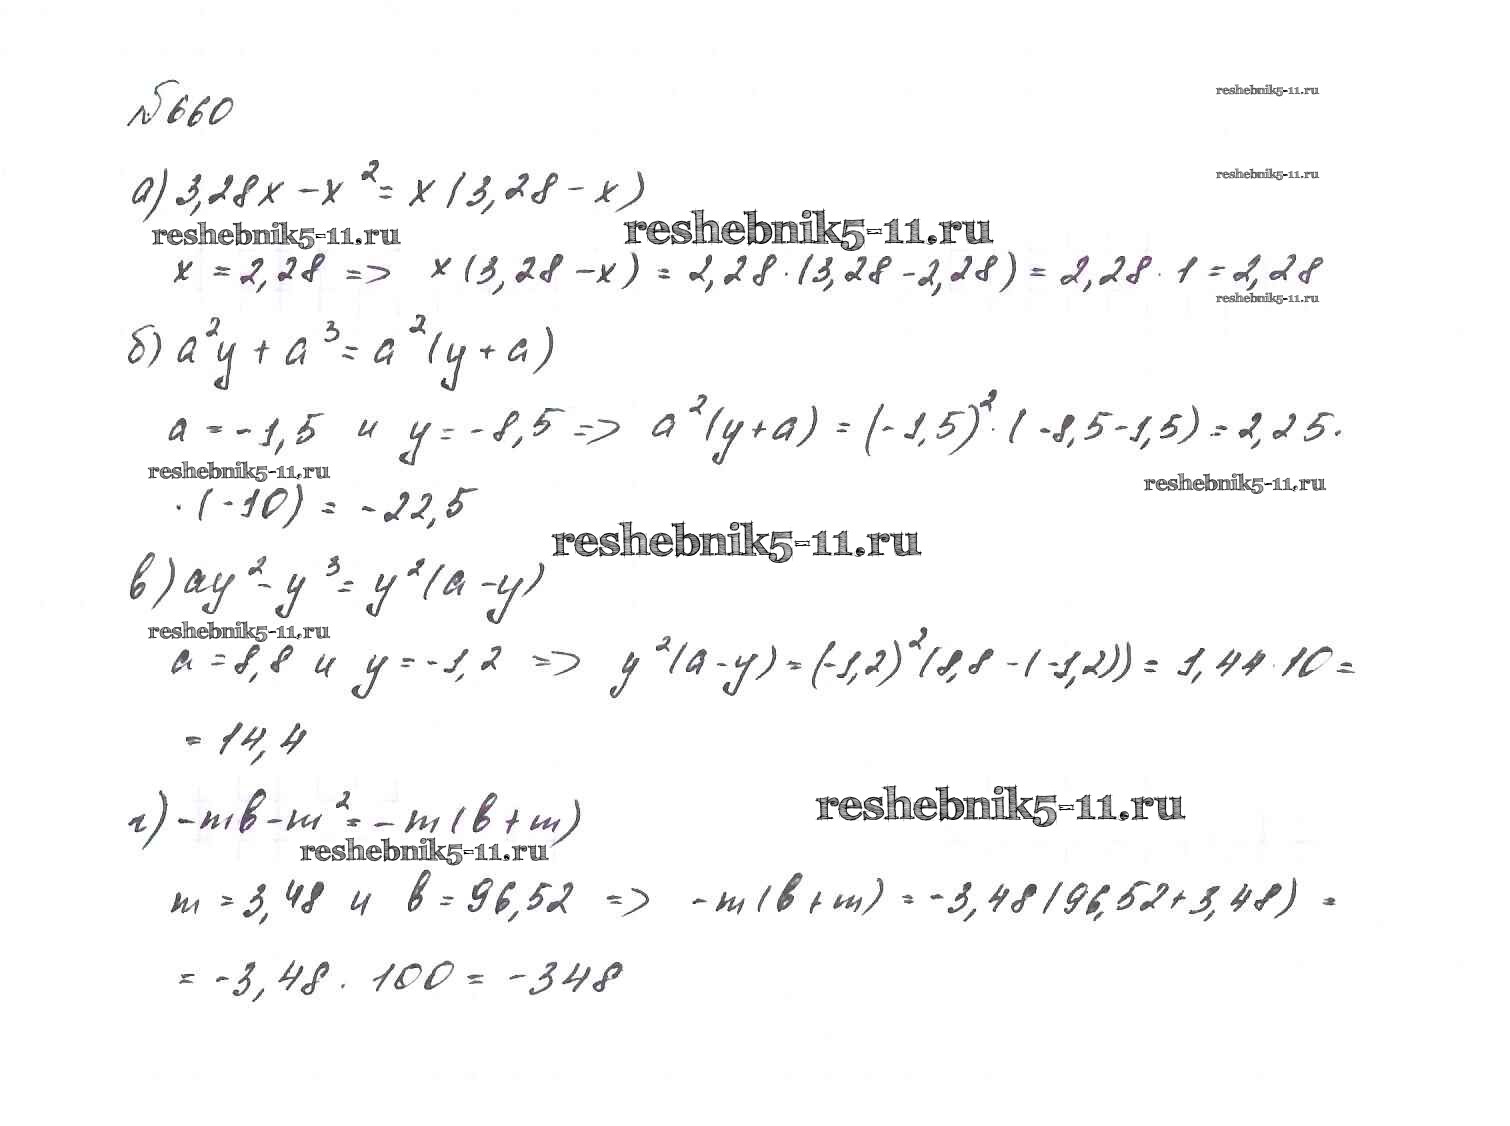 №660
reshebnik5-11.ru
reshebnik5-11.ru
а) 3,28x - x² = x(3,28 - x)
reshebnik5-11.ru
reshebnik5-11.ru
x = 2,28 => x(3,28 - x) = 2,28 · (3,28 - 2,28) = 2,28 · 1 = 2,28
reshebnik5-11.ru
б) a²y + a³ = a²(y + a)
a = -1,5 и y = -8,5 => a²(y + a) = (-1,5)² · (-8,5 - 1,5) = 2,25 ·
reshebnik5-11.ru
reshebnik5-11.ru
· (-10) = -22,5
reshebnik5-11.ru
в) ay² - y³ = y²(a - y)
reshebnik5-11.ru
a = 8,8 и y = -1,2 => y²(a - y) = (-1,2)²(8,8 - (-1,2)) = 1,44 · 10 =
= 14,4
reshebnik5-11.ru
г) -mb - m² = -m(b + m)
reshebnik5-11.ru
m = 3,48 и b = 96,52 => -m(b + m) = -3,48(96,52 + 3,48) =
= -3,48 · 100 = -348